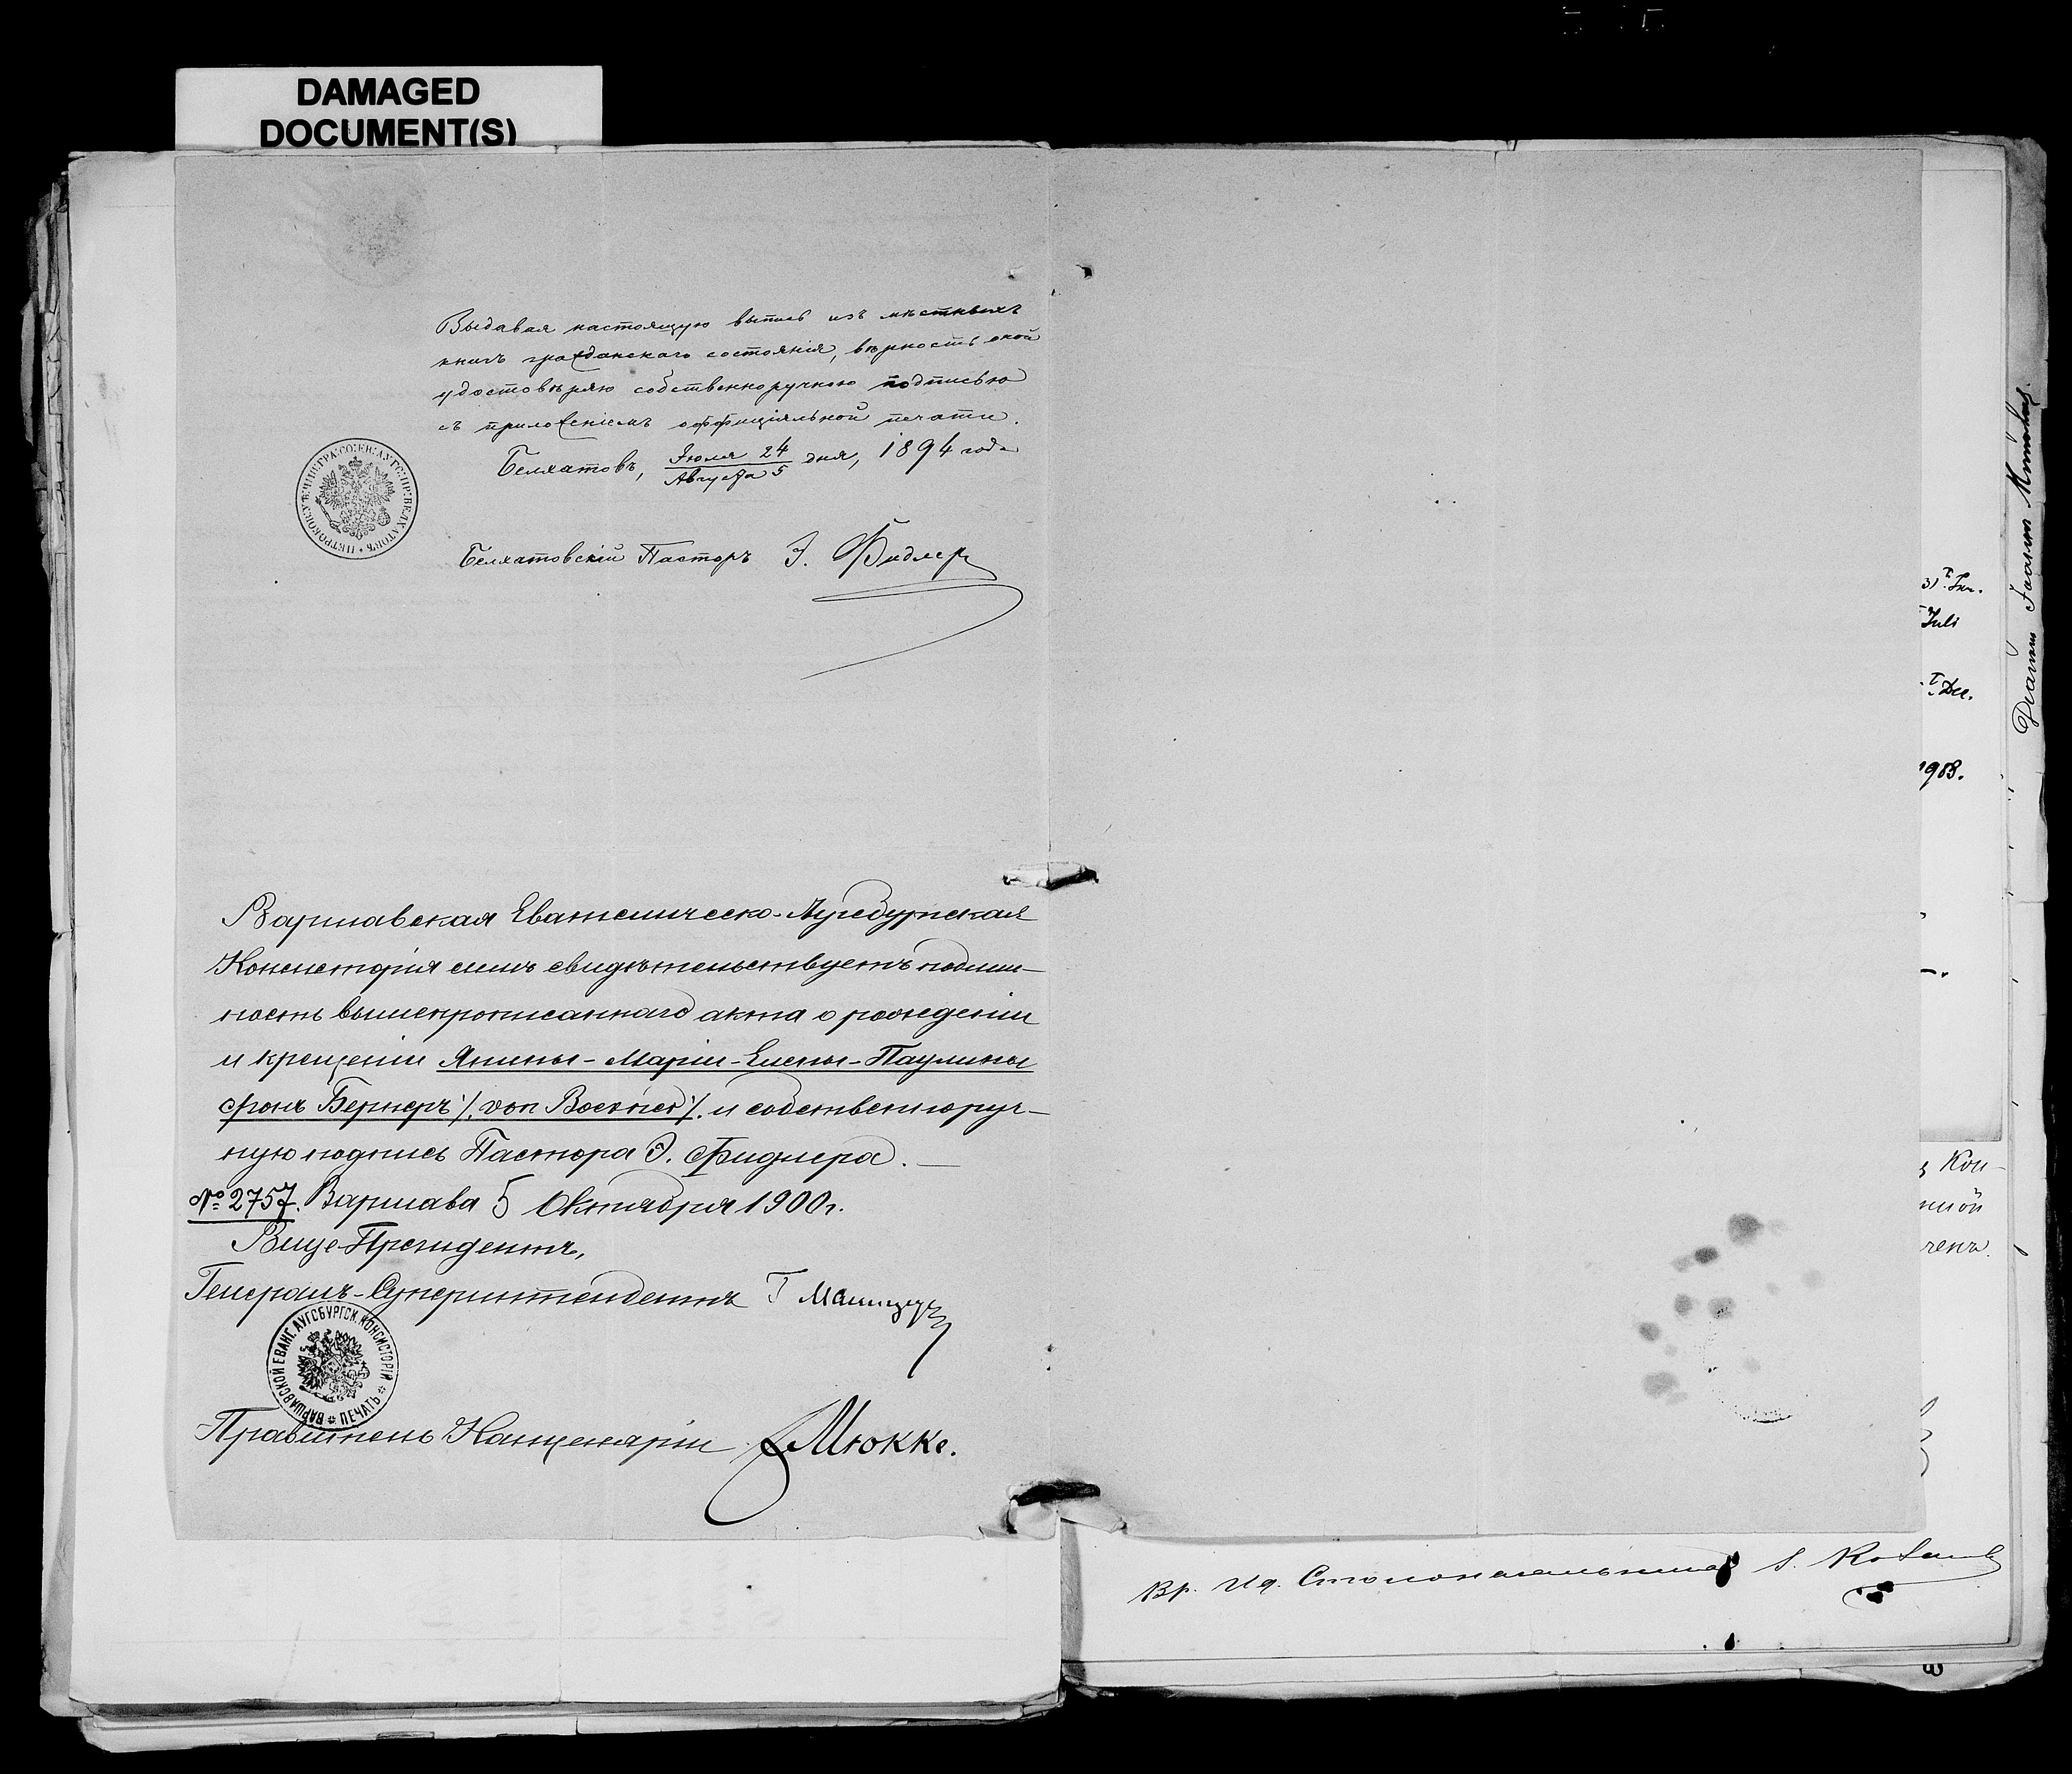 DAMAGED
DOCUMENT(S)
Выдавая настоящую выпись изъ мѣстныхъ
книгъ гражданскаго состоянія, вѣрность оной
удостовѣряю собственноручною подписью
съ приложеніемъ оффиціяльной печати.
Белхатовъ, Іюля 24 / Августа 5 дня, 1894 года
Белхатовскій Пасторъ Э. Фидлеръ
Варшавская Евангелическо-Аугсбургская
Консисторія симъ свидѣтельствуетъ подлин-
ность вышепрописаннаго акта о рожденіи
и крещеніи Янины-Маріи-Елены-Паулины
фонъ Бернеръ /. von Boerner /. и собственноруч-
ную подпись Пастора Э. Фидлера. —
№ 2757. Варшава 5 Октября 1900 г.
Вице-Президентъ,
Генералъ-Суперинтендентъ Г Маницус
ВАРШАВСКОЙ ЕВАНГ. АУГСБУРГСК. КОНСИСТОРІИ
ПЕЧАТЬ
Правитель Канцеляріи Мюкке.
Juli
Dec.
1903.
Кон-
ченъ.
Вр. И д. Столоначальника